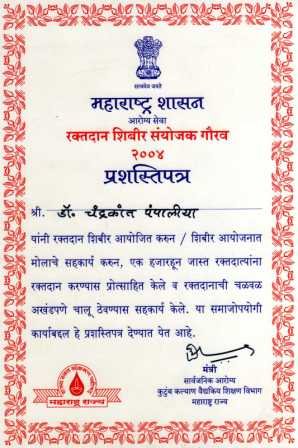 सत्यमेव जयते
महाराष्ट्र शासन
आरोग्य सेवा
रक्तदान शिबीर संयोजक गौरव
२००४
प्रशस्तिपत्र
श्री. डॉ. चंद्रकांत पंपालीया
यांनी रक्तदान शिबीर आयोजित करुन / शिबीर आयोजनात
मोलाचे सहकार्य करुन, एक हजारहून जास्त रक्तदात्यांना
रक्तदान करण्यास प्रोत्साहित केले व रक्तदानाची चळवळ
अखंडपणे चालू ठेवण्यास सहकार्य केले. या समाजोपयोगी
कार्याबद्दल हे प्रशस्तिपत्र देण्यात येत आहे.
मंत्री
सार्वजनिक आरोग्य
कुटुंब कल्याण वैद्यकिय शिक्षण विभाग
महाराष्ट्र राज्य
महाराष्ट्र राज्य